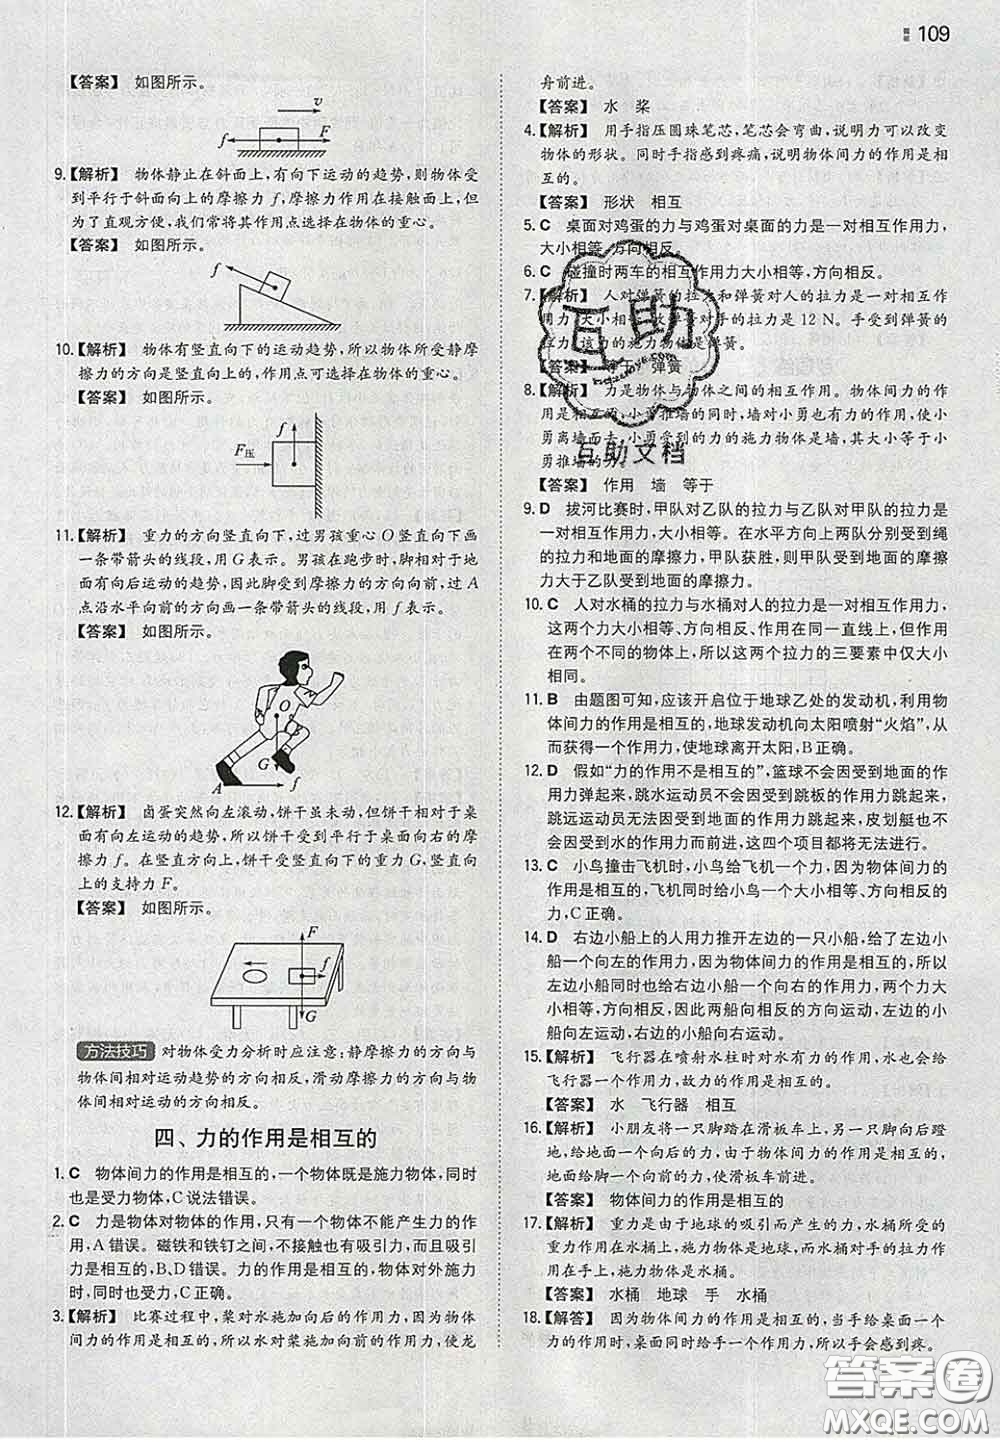 109
【答案】 如图所示。
v
f F
9.【解析】 物体静止在斜面上,有向下运动的趋势,则物体受
到平行于斜面向上的摩擦力 f,摩擦力作用在接触面上,但
为了直观方便,我们常将其作用点选择在物体的重心。
【答案】 如图所示。
f
10.【解析】 物体有竖直向下的运动趋势,所以物体所受静摩
擦力的方向是竖直向上的,作用点可选择在物体的重心。
【答案】 如图所示。
f
F压
11.【解析】 重力的方向竖直向下,过男孩重心 O 竖直向下画
一条带箭头的线段,用 G 表示。男孩在跑步时,脚相对于地
面有向后运动的趋势,因此脚受到摩擦力的方向向前,过 A
点沿水平向前的方向画一条带箭头的线段,用 f 表示。
【答案】 如图所示。
O
G
A f
12.【解析】 卤蛋突然向左滚动,饼干虽未动,但饼干相对于桌
面有向左运动的趋势,所以饼干受到平行于桌面向右的摩
擦力 f。在竖直方向上,饼干受竖直向下的重力 G,竖直向
上的支持力 F。
【答案】 如图所示。
F
f
G
方法技巧 对物体受力分析时应注意:静摩擦力的方向与
物体间相对运动趋势的方向相反,滑动摩擦力的方向与物
体间相对运动的方向相反。
四、力的作用是相互的
1. C 物体间力的作用是相互的,一个物体既是施力物体,同时
也是受力物体,C 说法错误。
2. C 力是物体对物体的作用,只有一个物体不能产生力的作
用,A 错误。磁铁和铁钉之间,不接触也有吸引力,而且吸引
力是相互的,B、D 错误。力的作用是相互的,物体对外施力
时,同时也受力,C 正确。
3.【解析】 比赛过程中,桨对水施加向后的作用力,因为物体
间力的作用是相互的,所以水对桨施加向前的作用力,使龙
舟前进。
【答案】 水 桨
4.【解析】 用手指压圆珠笔芯,笔芯会弯曲,说明力可以改变
物体的形状。同时手指感到疼痛,说明物体间力的作用是相
互的。
【答案】 形状 相互
5. C 桌面对鸡蛋的力与鸡蛋对桌面的力是一对相互作用力,
大小相等,方向相反。
6. C 碰撞时两车的相互作用力大小相等,方向相反。
7.【解析】 人对弹簧的拉力和弹簧对人的拉力是一对相互作
用力,大小相等,故弹簧对手的拉力是 12 N。手受到弹簧的
拉力,该力的施力物体是弹簧。
【答案】 等于 弹簧
8.【解析】 力是物体与物体之间的相互作用。物体间力的作
用是相互的,小勇推墙的同时,墙对小勇也有力的作用,使小
勇离墙而去,小勇受到的力的施力物体是墙,其大小等于小
勇推墙的力。
【答案】 作用 墙 等于
9. D 拔河比赛时,甲队对乙队的拉力与乙队对甲队的拉力是
一对相互作用力,大小相等。在水平方向上两队分别受到绳
的拉力和地面的摩擦力,甲队获胜,则甲队受到地面的摩擦
力大于乙队受到地面的摩擦力。
10. C 人对水桶的拉力与水桶对人的拉力是一对相互作用力,
这两个力大小相等、方向相反、作用在同一直线上,但作用
在两个不同的物体上,所以这两个拉力的三要素中仅大小
相同。
11. B 由题图可知,应该开启位于地球乙处的发动机,利用物
体间力的作用是相互的,地球发动机向太阳喷射“火焰”,从
而获得一个作用力,使地球离开太阳,B 正确。
12. D 假如“力的作用不是相互的”,篮球不会因受到地面的作
用力弹起,跳水运动员不会因受到跳板的作用力跳起来,
跳远运动员无法因受到地面的作用力跳起来,皮划艇也不
会因受到水的作用力而前进,这四个项目都将无法进行。
13. C 小鸟撞击飞机时,小鸟给飞机一个力,因为物体间力的
作用是相互的,飞机同时给小鸟一个大小相等、方向相反的
力,C 正确。
14. D 右边小船上的人用力推开左边的一只小船,给了左边小
船一个向左的作用力,因为物体间力的作用是相互的,所以
左边小船同时也给右边小船一个向右的作用力,两个力大
小相等,方向相反,因此两船向相反的方向运动,左边的小
船向左运动,右边的小船向右运动。
15.【解析】 飞行器在喷射水柱时对水有力的作用,水也会给
飞行器一个作用力,故力的作用是相互的。
【答案】 水 飞行器 相互
16.【解析】 小朋友将一只脚踏在滑板车上,另一只脚向后蹬
地,给地面一个向后的力,由于物体间力的作用是相互的,
地面给脚一个向前的力,使滑板车前进。
【答案】 物体间力的作用是相互的
17.【解析】 重力是由于地球的吸引而产生的力,水桶所受的
重力作用在水桶上,施力物体是地球,而水桶对手的拉力作
用在手上,施力物体是水桶。
【答案】 水桶 地球 手 水桶
18.【解答】 因为物体间力的作用是相互的,当手给桌面一个
力的作用时,桌面同时给手一个作用力,所以手会感到疼。
互助
互助文档
答案圈
MXQE.COM